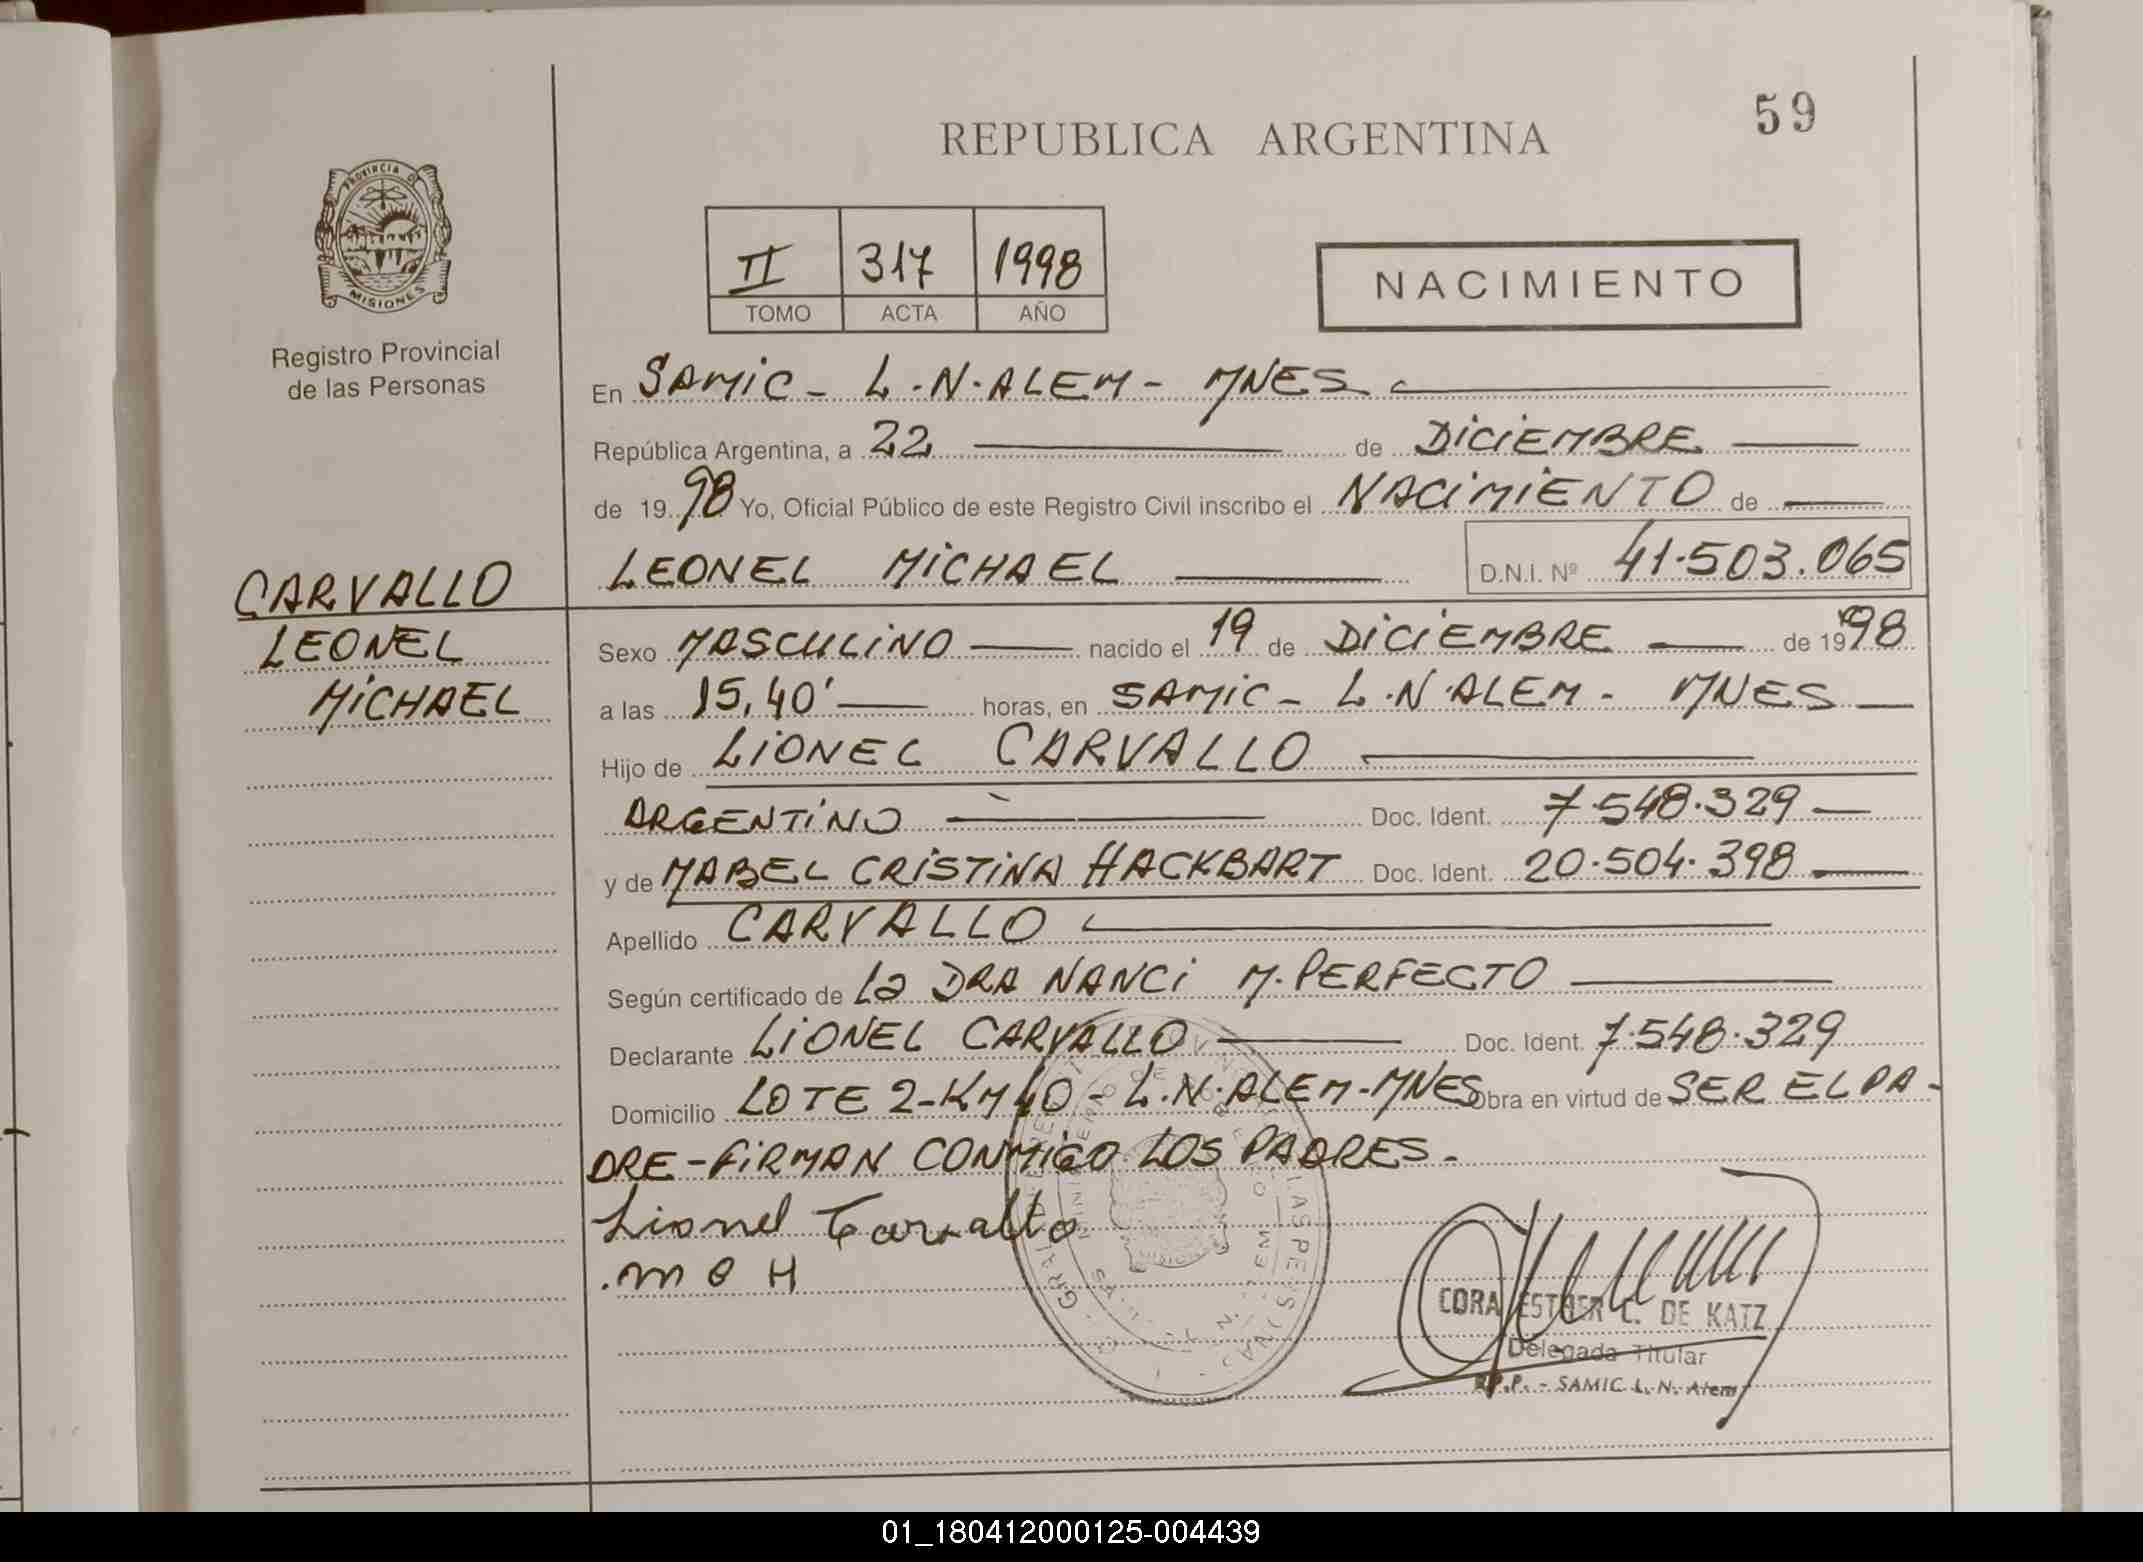 59
REPUBLICA ARGENTINA
PROVINCIA DE
MISIONES
Registro Provincial
de las Personas
II 317 1998
TOMO ACTA AÑO
NACIMIENTO
En SAMIC - L.N. ALEM - MNES
República Argentina, a 22 de DICIEMBRE
de 19 98 Yo, Oficial Público de este Registro Civil inscribo el NACIMIENTO de
LEONEL MICHAEL D.N.I. Nº 41.503.065
CARVALLO
LEONEL
MICHAEL
Sexo MASCULINO nacido el 19 de DICIEMBRE de 19 98
a las 15,40' horas, en SAMIC - L.N. ALEM - MNES
Hijo de LIONEL CARVALLO
ARGENTINO Doc. Ident. 7.548.329
y de MABEL CRISTINA HACKBART Doc. Ident. 20.504.398
Apellido CARVALLO
Según certificado de La DRA NANCI M. PERFECTO
Declarante LIONEL CARVALLO Doc. Ident. 7.548.329
Domicilio LOTE 2-KM 40 - L.N. ALEM-MNES Obra en virtud de SER EL PA-
DRE - FIRMAN CONMIGO LOS PADRES.
Lionel Carvallo
M C H
CORA ESTHER C. DE KATZ
Delegada Titular
R.P.P. - SAMIC L. N. Alem
01_180412000125-004439